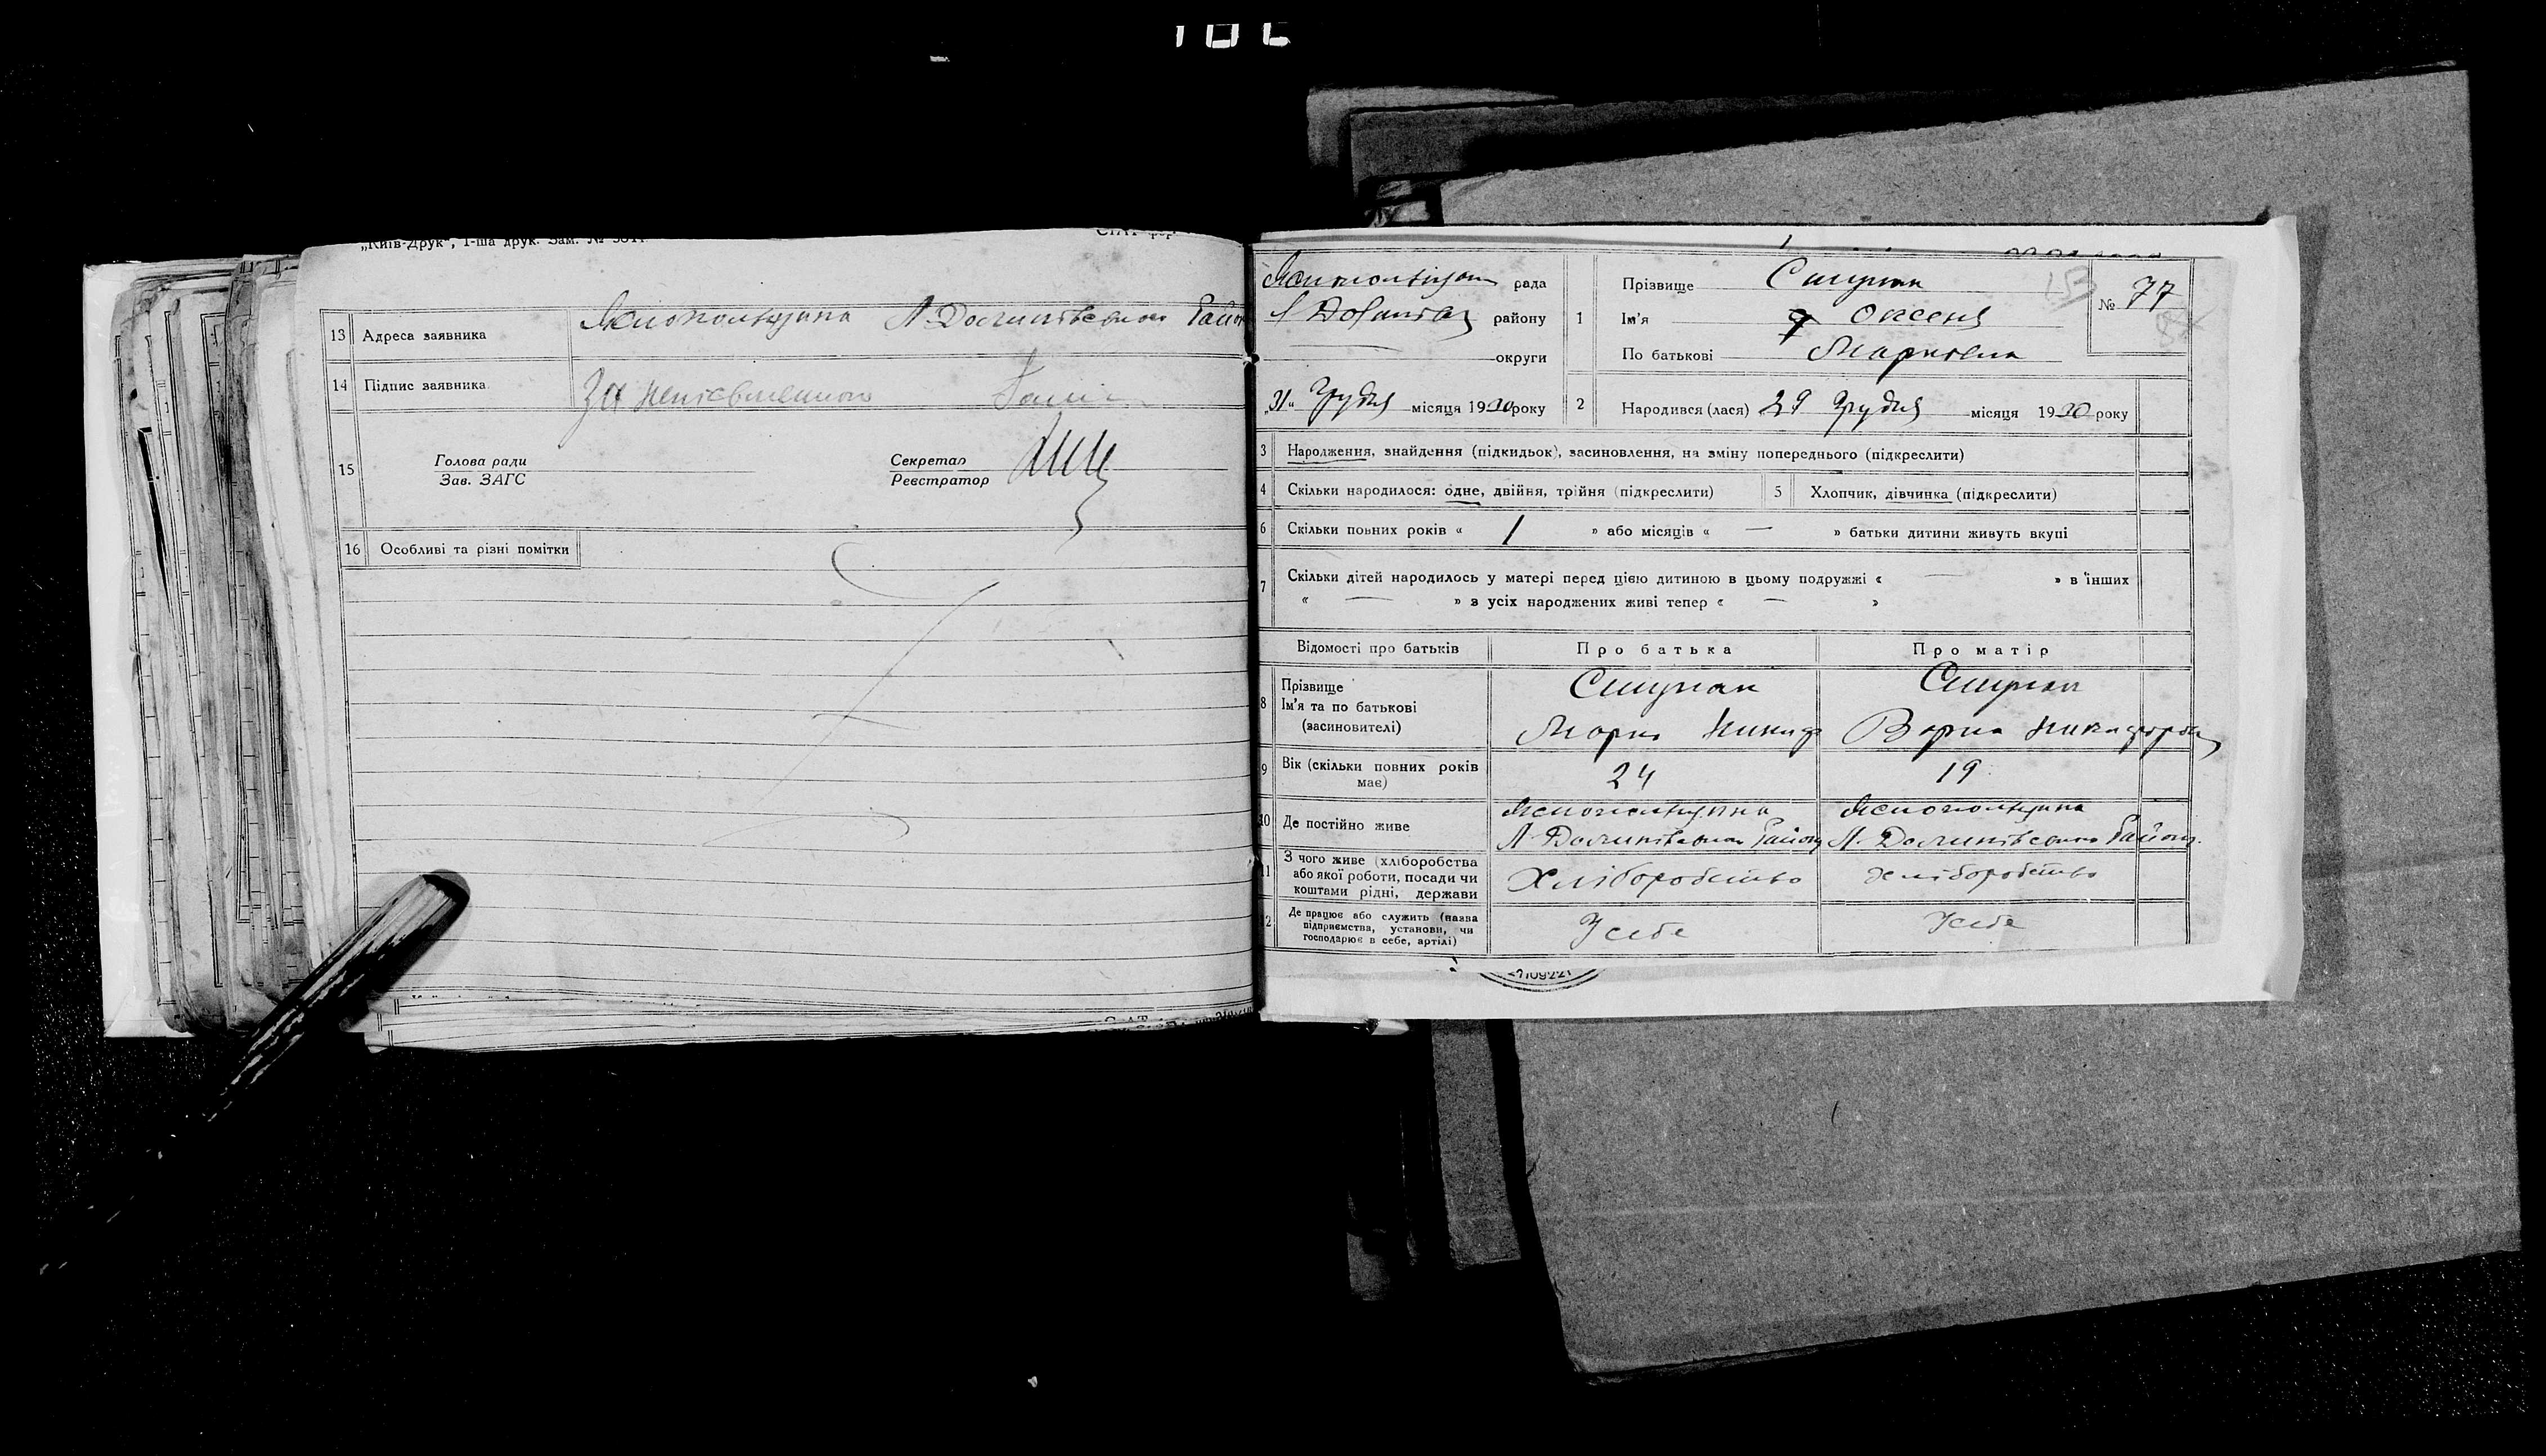 „Київ-Друк", 1-ша друк. Зам. №
13 Адреса заявника Район
14 Підпис заявника За неписьменного
15 Голова ради
Зав. ЗАГС
Секретар
Реєстратор
16 Особливі та різні помітки
рада
району
округи
„31“ Грудня місяця 1930 року
1 Прізвище
Ім'я Оксеня
По батькові Марковна
№ 77
2 Народився (лася) 29 Грудня місяця 1930 року
3 Народження, знайдення (підкидьок), засиновлення, на зміну попереднього (підкреслити)
4 Скільки народилося: одне, двійня, трійня (підкреслити) 5 Хлопчик, дівчинка (підкреслити)
6 Скільки повних років « 1 » або місяців « — » батьки дитини живуть вкупі
7 Скільки дітей народилось у матері перед цією дитиною в цьому подружжі « — » в інших
« — » з усіх народжених живі тепер « — »
Відомості про батьків Про батька Про матір
8 Прізвище
Ім'я та по батькові
(засиновителі)
Марко Никиф
Варка Никифоров
9 Вік (скільки повних років має) 24 19
10 Де постійно живе
Район
11 З чого живе (хліборобства
або якої роботи, посади чи
коштами рідні, держави
Хліборобство хліборобство
12 Де працює або служить (назва
підприємства, установи, чи
господарює в себе, артілі)
У себе У себе